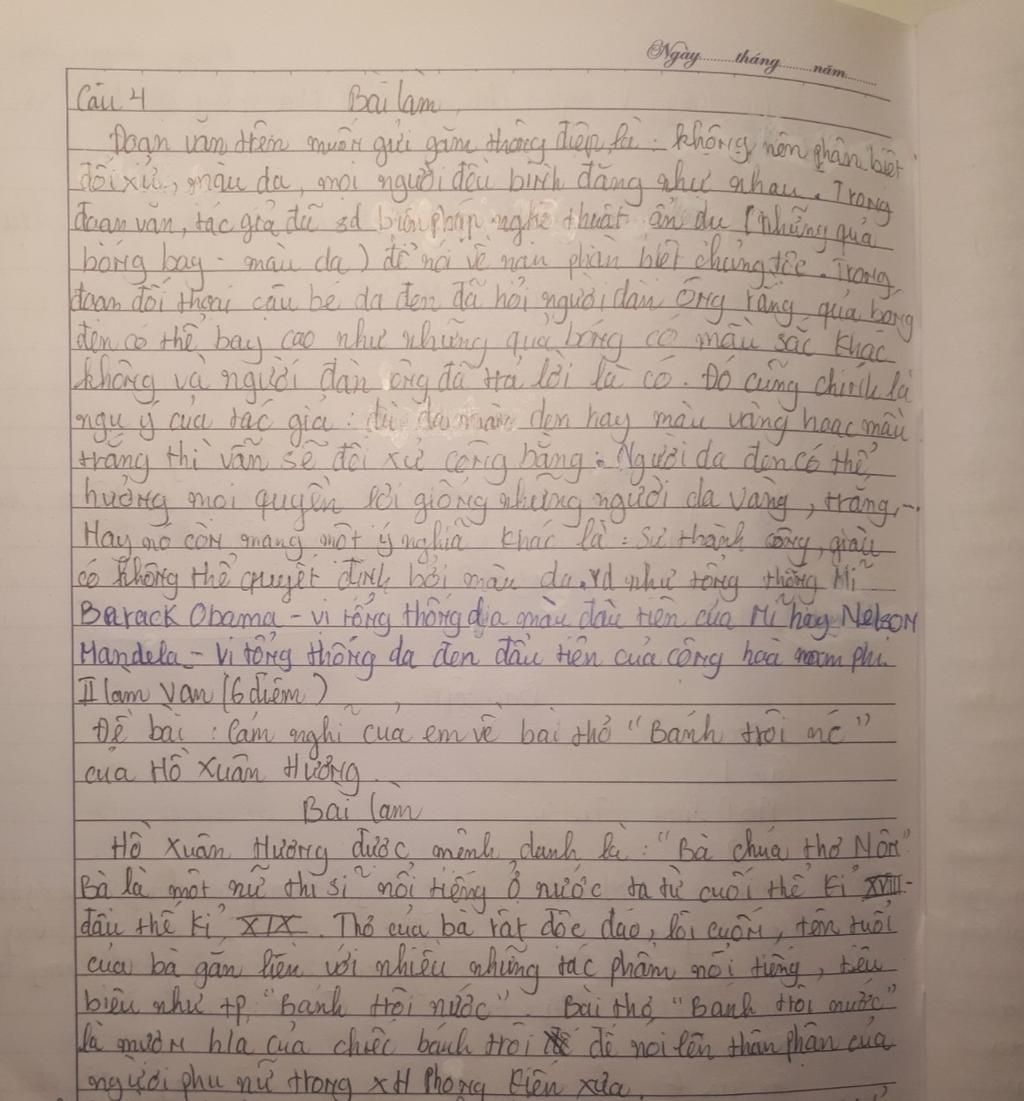 Ngày.........tháng.........năm.........
Câu 4 Bài làm
Đoạn văn trên muốn gửi gắm thông điệp là : không nên phân biệt
đối xử, màu da, mọi người đều bình đẳng như nhau. Trong
đoạn văn, tác giả đã sd biện pháp nghệ thuật ẩn dụ (những quả
bóng bay - màu da) để nói về nạn phân biệt chủng tộc. Trong
đoạn đối thoại cậu bé da đen đã hỏi người đàn ông rằng, quả bóng
đen có thể bay cao như những quả bóng có màu sắc khác
không và người đàn ông đã trả lời là có. Đó cũng chính là
ngụ ý của tác giả : dù da màu đen hay màu vàng hoặc màu
trắng thì vẫn sẽ đối xử công bằng. Người da đen có thể
hưởng mọi quyền lợi giống những người da vàng, trắng,...
Hay nó còn mang một ý nghĩa khác là : sự thành công, giàu
có không thể quyết định bởi màu da. Vd như tổng thống Mĩ
Barack Obama - vị tổng thống da màu đầu tiên của Mĩ hay Nelson
Mandela - vị tổng thống da đen đầu tiên của cộng hoà nam phi.
II làm văn (6 điểm)
Đề bài : Cảm nghĩ của em về bài thơ "Bánh trôi nc"
của Hồ Xuân Hương.
Bài làm
Hồ Xuân Hương được mệnh danh là : "Bà chúa thơ Nôm"
Bà là một nữ thi sĩ nổi tiếng ở nước ta từ cuối thế kỉ XVIII -
đầu thế kỉ XIX. Thơ của bà rất độc đáo, lôi cuốn, tên tuổi
của bà gắn liền với nhiều những tác phẩm nổi tiếng, tiêu
biểu như tp "Bánh trôi nước". Bài thơ "Bánh trôi nước"
là mượn h/a của chiếc bánh trôi để nói lên thân phận của
người phụ nữ trong xH Phong kiến xưa.